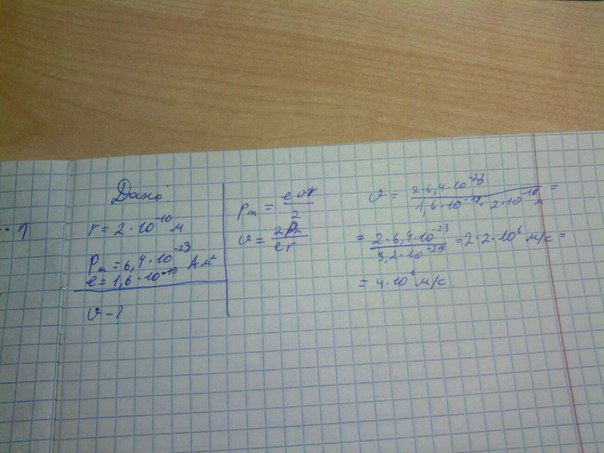 Дано
r = 2·10⁻¹⁰ м
Pₘ = 6,4·10⁻²³ А·м²
e = 1,6·10⁻¹⁹
v - ?
pₘ = evr/2
v = 2Pₘ/er
v = 2·6,4·10⁻²³/1,6·10⁻¹⁹·2·10⁻¹⁰ м =
= 2·6,4·10⁻²³/3,2·10⁻²⁹ = 2·2·10⁶ м/с =
= 4·10⁶ м/с